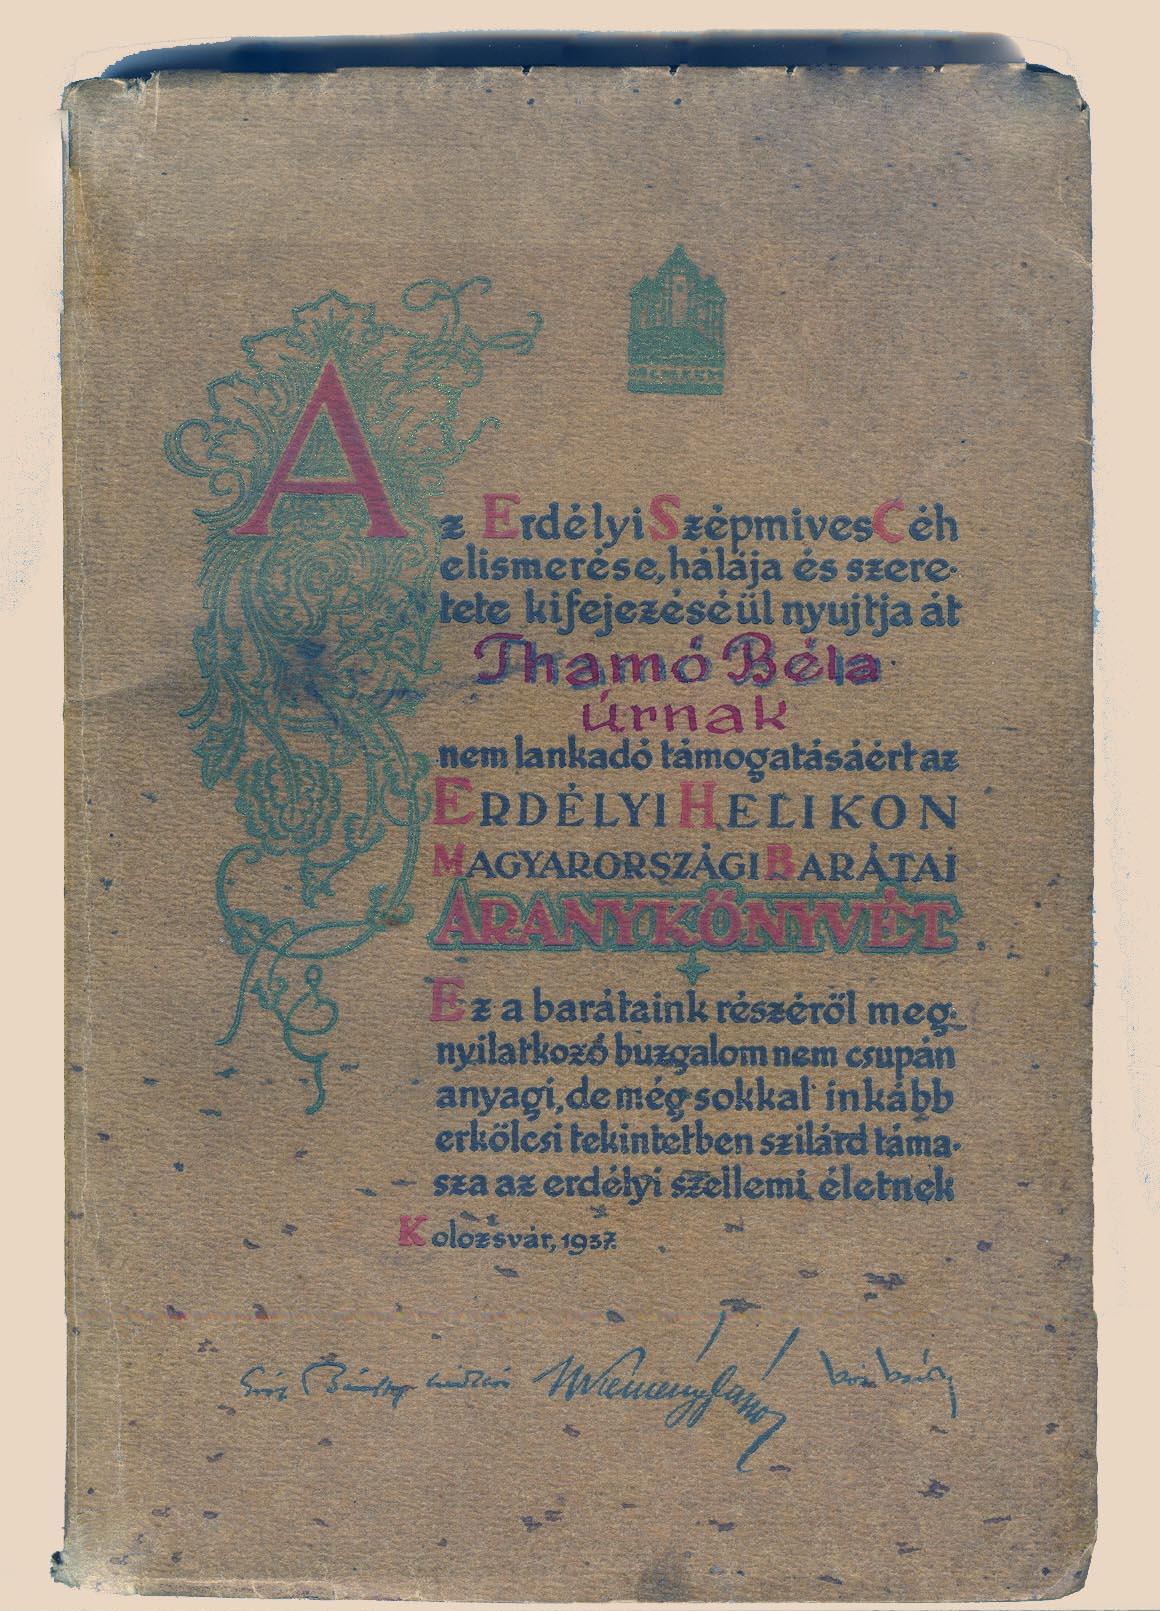 Az Erdélyi Szépmives Céh
elismerése, hálája és szere-
tete kifejezéséül nyujtja át
Thamó Béla
úrnak
nem lankadó támogatásáért az
ERDÉLYI HELIKON
MAGYARORSZÁGI BARÁTAI
ARANYKÖNYVÉT
Ez a barátaink részéről meg-
nyilatkozó buzgalom nem csupán
anyagi, de még sokkal inkább
erkölcsi tekintetben szilárd táma-
sza az erdélyi szellemi életnek
Kolozsvár, 1937.
Gróf Bánffy Miklós Kemény János Kós Károly